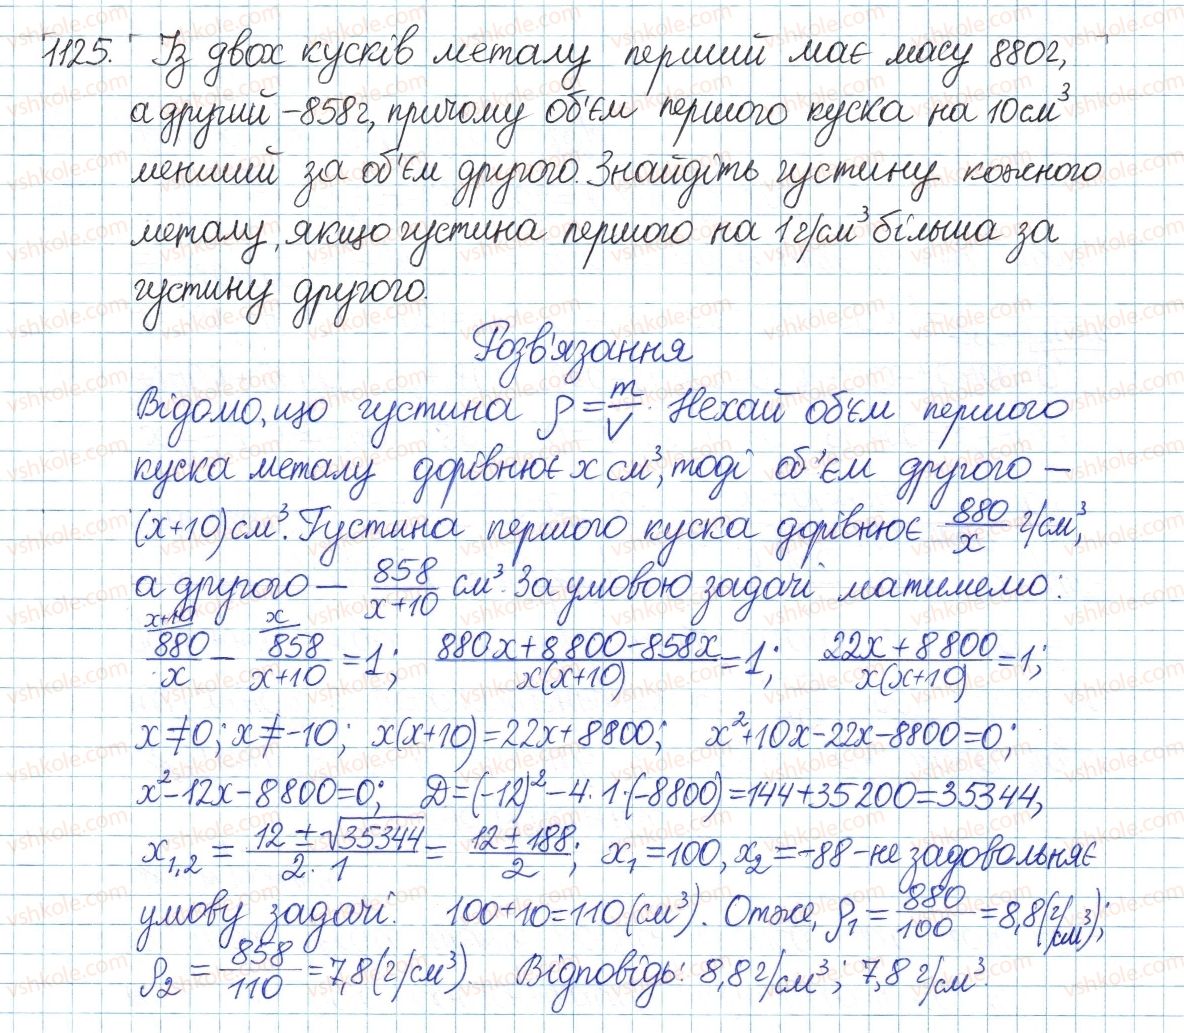 1125. Із двох кусків металу перший має масу 880г,
а другий – 858г, причому об'єм першого куска на 10 см³
менший за об'єм другого. Знайдіть густину кожного
металу, якщо густина першого на 1 г/см³ більша за
густину другого.
Розв'язання
Відомо, що густина ρ = m/V. Нехай об'єм першого
куска металу дорівнює x см³, тоді об'єм другого –
(x+10) см³. Густина першого куска дорівнює 880/x г/см³,
а другого – 858/(x+10) см³. За умовою задачі матимемо:
x+10 x
880/x – 858/(x+10) = 1; (880x+8800-858x)/(x(x+10)) = 1; (22x+8800)/(x(x+10)) = 1;
x≠0; x≠-10; x(x+10)=22x+8800; x²+10x-22x-8800=0;
x²-12x-8800=0; Д=(-12)²-4·1·(-8800)=144+35200=35344,
x₁,₂ = (12±√35344)/(2·1) = (12±188)/2; x₁=100, x₂=-88 – не задовольняє
умову задачі. 100+10=110 (см³). Отже, ρ₁ = 880/100 = 8,8 (г/см³);
ρ₂ = 858/110 = 7,8 (г/см³). Відповідь: 8,8 г/см³; 7,8 г/см³.
vshkole.com